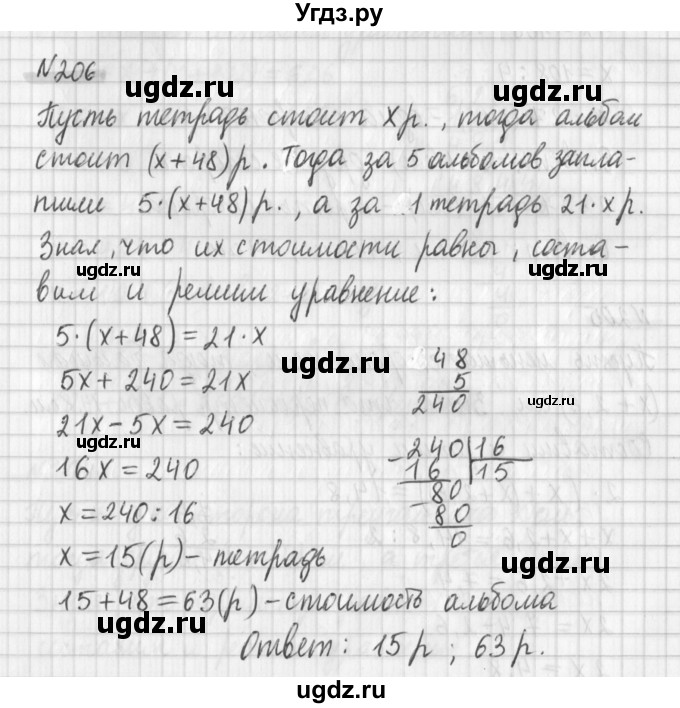 Угдз.ру
№206
Пусть тетрадь стоит x р., тогда альбом
стоит (x+48) р. Тогда за 5 альбомов запла-
тили 5·(x+48) р., а за 1 тетрадь 21·x р.
Зная, что их стоимости равны, соста-
вим и решим уравнение:
5·(x+48)=21·x
5x+240=21x
21x-5x=240
16x=240
x=240:16
x=15(р)-тетрадь
15+48=63(р)-стоимость альбома
Ответ: 15 р; 63 р.
48
5
240
-240|16
16 15
-80
80
0
ugdz.ru
ugdz.ru
ugdz.ru
ugdz.ru
ugdz.ru
ugdz.ru
ugdz.ru
ugdz.ru
ugdz.ru
ugdz.ru
ugdz.ru
ugdz.ru
ugdz.ru
ugdz.ru